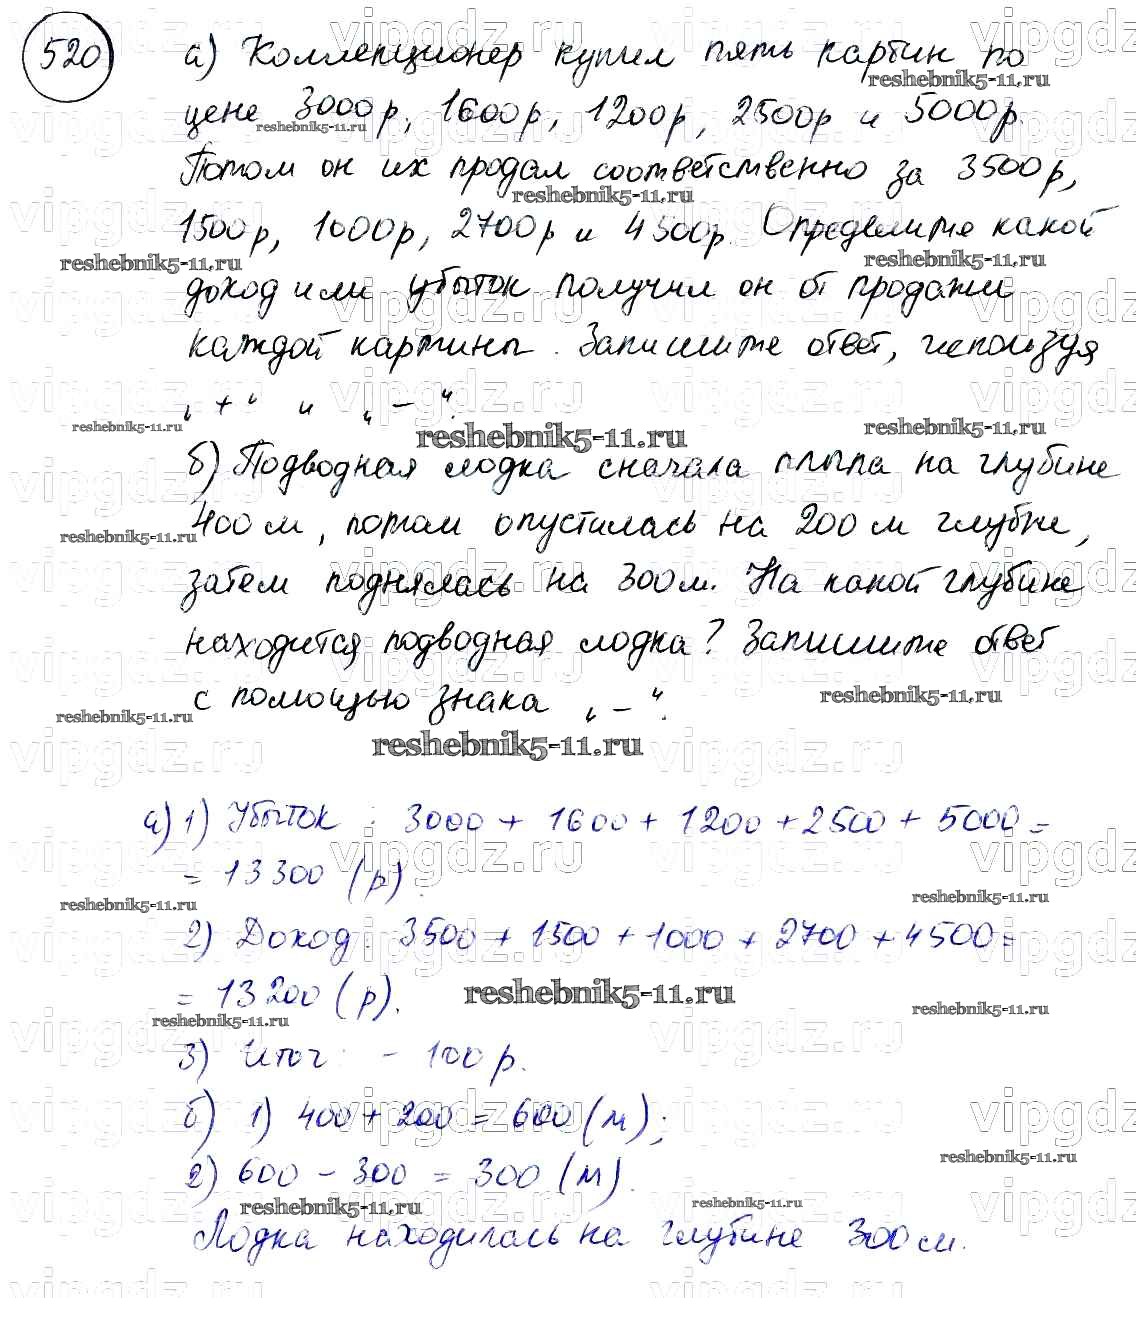 520
а) Коллекционер купил пять картин по
цене 3000р, 1600р, 1200р, 2500р и 5000р.
Потом он их продал соответственно за 3500р,
1500р, 1000р, 2700р и 4500р. Определите какой
доход или убыток получил он от продажи
каждой картины. Запишите ответ, используя
„+“ и „-“.
б) Подводная лодка сначала плыла на глубине
400м, потом опустилась на 200м глубже,
затем поднялась на 300м. На какой глубине
находится подводная лодка? Запишите ответ
с помощью знака „-“.
а) 1) Убыток: 3000 + 1600 + 1200 + 2500 + 5000 =
= 13300 (р).
2) Доход: 3500 + 1500 + 1000 + 2700 + 4500 =
= 13200 (р).
3) Итог: - 100 р.
б) 1) 400 + 200 = 600 (м);
2) 600 - 300 = 300 (м).
Лодка находилась на глубине 300м.
vipgdz.ru
reshebnik5-11.ru